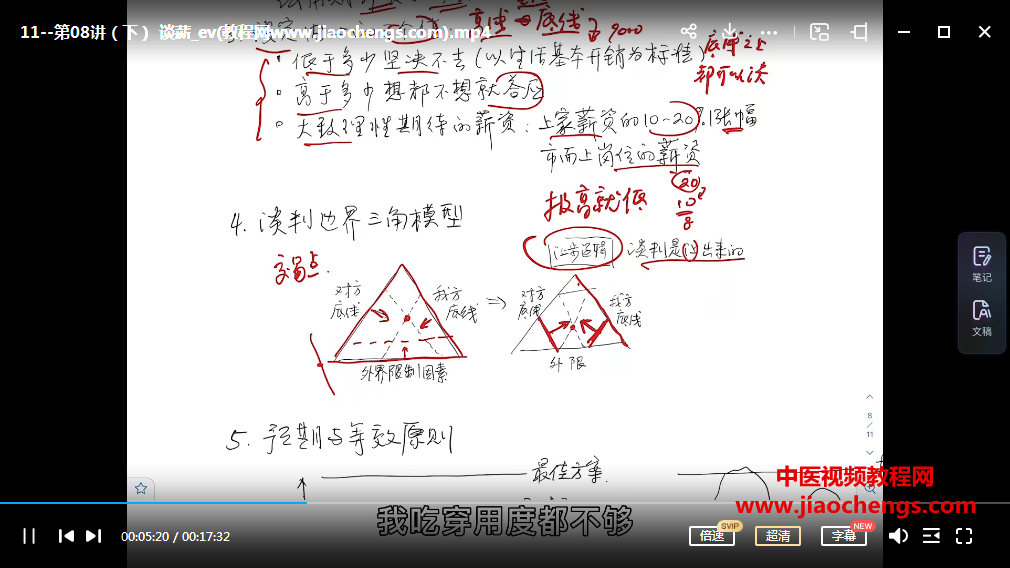 11--第08讲（下） 谈薪_ev(教程网www.jiaochengs.com).mp4
高线 → 底线
9000
底薪之上
都可以谈
• 低于多少坚决不去（以生活基本开销为标准）
• 高于多少想都不想就答应
• 大致理性期待的薪资：上家薪资的10~20%涨幅
市面上岗位的薪资
报高就低
20
10
8
4. 谈判边界三角模型
让步逻辑
谈判是 出来的
交易点
对方
底线
我方
底线
外界限制因素
对方
底线
我方
底线
外限
笔记
文稿
8
/
11
5. 预期与等效原则
最佳方案
中医视频教程网
www.jiaochengs.com
我吃穿用度都不够
00:05:20 / 00:17:32
倍速
SVIP
超清
字幕
NEW